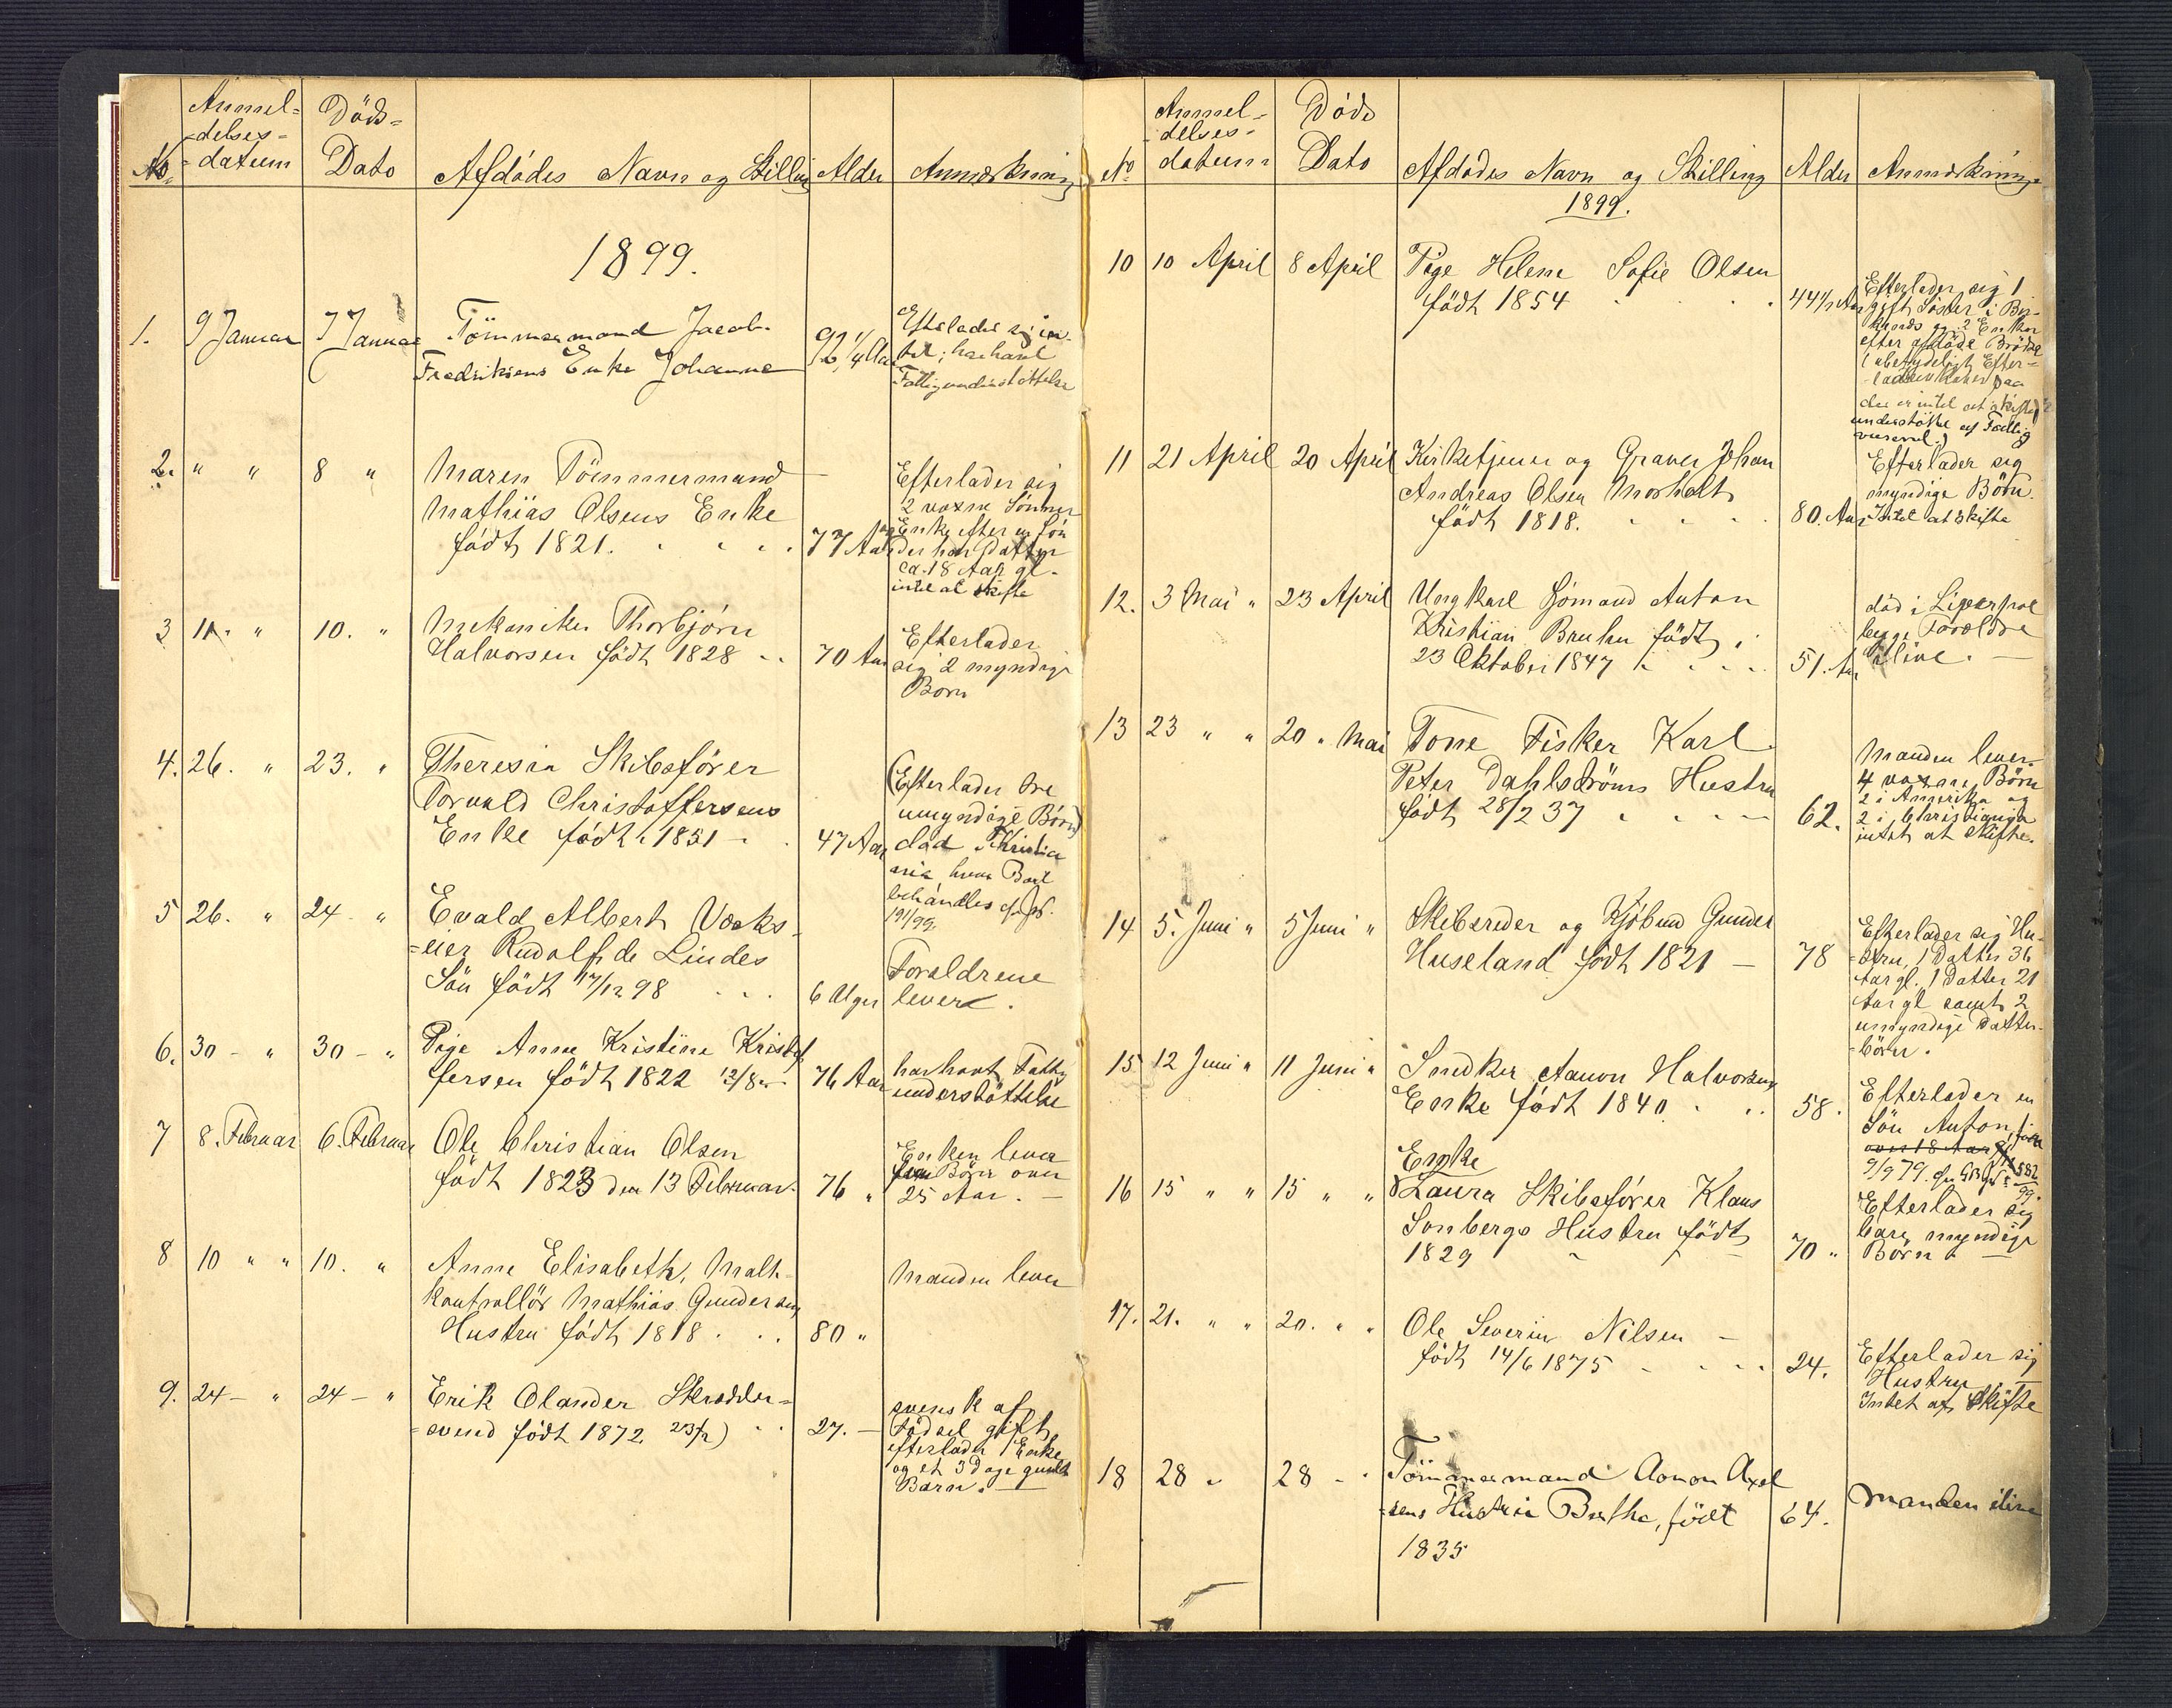 Anmel-
-delses-
-datum
Döds-
Dato
No
Afdödes Navn og Stilling
Alder
Anmærkning
1899.
1.
9 Januar
7 Januar
Tömmermand Jacob
Fredriksens Enke Johanne
92 1/4 Aar
Efterlader sig in-
tet; har havt
Fattigunderstøttelse
2.
" "
8 "
Maren Tömmermand
Mathias Olsens Enke
födt 1821.
77 Aar
Efterlader sig
2 voxne Sönner
og Enke efter en Sön
der har Datter
ca. 18 Aar gl.
intet at skifte
3
11. "
10. "
Mekaniker Thorbjörn
Halvorsen födt 1828
70 Aar
Efterlader
sig 2 myndige
Børn
4.
26. "
23. "
Theresia Skibsförer
Torvald Christoffersens
Enke född 1851
47 Aar
(Efterlader tre
umyndige Börn)
död i Kristia
nia hvor Boet
behandles
19/99.
5
26. "
24 "
Evald Albert Værks-
=eier Rudolf de Lindes
Sön födt 17/12 98
6 Uger
Forældrene
lever.
6.
30 - "
30 - "
Pige Anne Kristine Kristof
fersen födt 1822 12/8
76 Aar
har havt Fattig
understöttelse
7
8. Februar
6. Februar
Ole Christian Olsen
födt 1823 den 13 Februar.
76 "
Enken lever
Börn over
25 Aar. —
8
10 " "
10. "
Anne Elisabeth, Malt-
kontrollör Mathias Gundersens
Hustru födt 1818
80 "
Manden lever
9.
24 - "
24 - "
Erik Olander Skrædder=
=svend födt 1872 23/2)
27. —
svensk af
Födsel gift,
efterlader 1 Enke
og et 3 Dage gamlt
Barn.
Anmel-
delses-
datum
Döds
Dato
No
Afdödes Navn og Stilling
Alder
Anmærkning
1899.
10
10 April
8 April
Pige Helene Sofie Olsen
födt 1854
44 1/2 Aar
Efterlader sig 1
gift Söster i
og 2 Enker
efter afdöde Brödre
(ubetydeligt Efter-
=ladenskaber saa
der er intet at skifte)
understöttet af Fattig
væsenet.)
11
21 April
20 April
Kirketjener og Graver Johan
Andreas Olsen Morholt
födt 1818.
80. Aar
Efterlader sig
myndige Börn.
Intet at skifte
12.
3 Mai "
23 April
Ungkarl Sjömand Anton
Kristian Bruhn födt
23 Oktober 1847
51. Aar
död i Liverpool
begge Forældre
ilive. —
13
23 " "
20 " Mai
Tone Fisker Karl
Peter Dahlströms Hustru
födt 28/2 37
62.
Manden lever.
4 voxne Börn
2 i Amerika og
2 i Christiania
intet at skifte.
14
5. Juni "
5 Juni "
Skibsreder og Kjöbmd Gunder
Huseland födt 1821 —
78
Efterlader sig Hu-
=stru, 1 Datter 36
Aar gl. 1 Datter 21
Aar gl samt 2
umyndige Datter-
=börn.
15
12 Juni "
11 Juni "
Snedker Aanon Halvorsens
Enke födt 1840
58.
Efterlader en
Sön Anton, född
over 18 Aar
9/9 79.
99.
16
15 " "
15 " "
Enke
Laura Skibsförer Klaus
Sonbergs Hustru födt
1829
70 "
Efterlader sig
bare myndige
Börn. —
17.
21. " "
20. " "
Ole Severin Nilsen —
födt 14/6 1875
24.
Efterlader sig
Hustru. —
Intet at Skifte
18
28 "
28 - "
Tömmermand Aanon Axel
=sens Hustru Berthe, född
1835
64.
Manden ilive